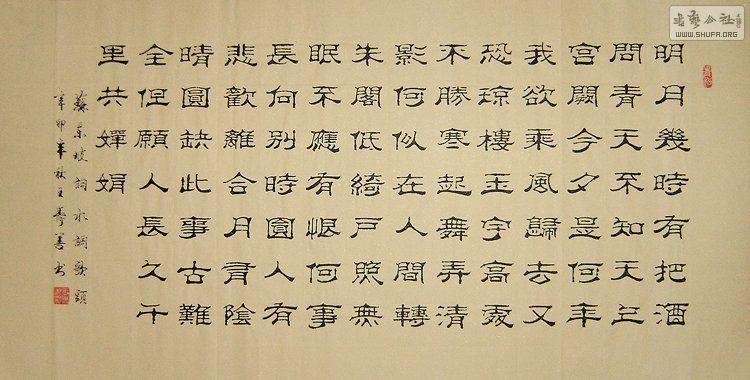 明月幾時有把酒
問青天不知天上
宮闕今夕是何年
我欲乘風歸去又
恐瓊樓玉宇高處
不勝寒起舞弄清
影何似在人間轉
朱閣低綺戶照無
眠不應有恨何事
長向別時圓人有
悲歡離合月有陰
晴圓缺此事古難
全但願人長久千
里共嬋娟
蘇東坡詞水調歌頭
辛卯年秋王善書
WWW.SHUFA.ORG